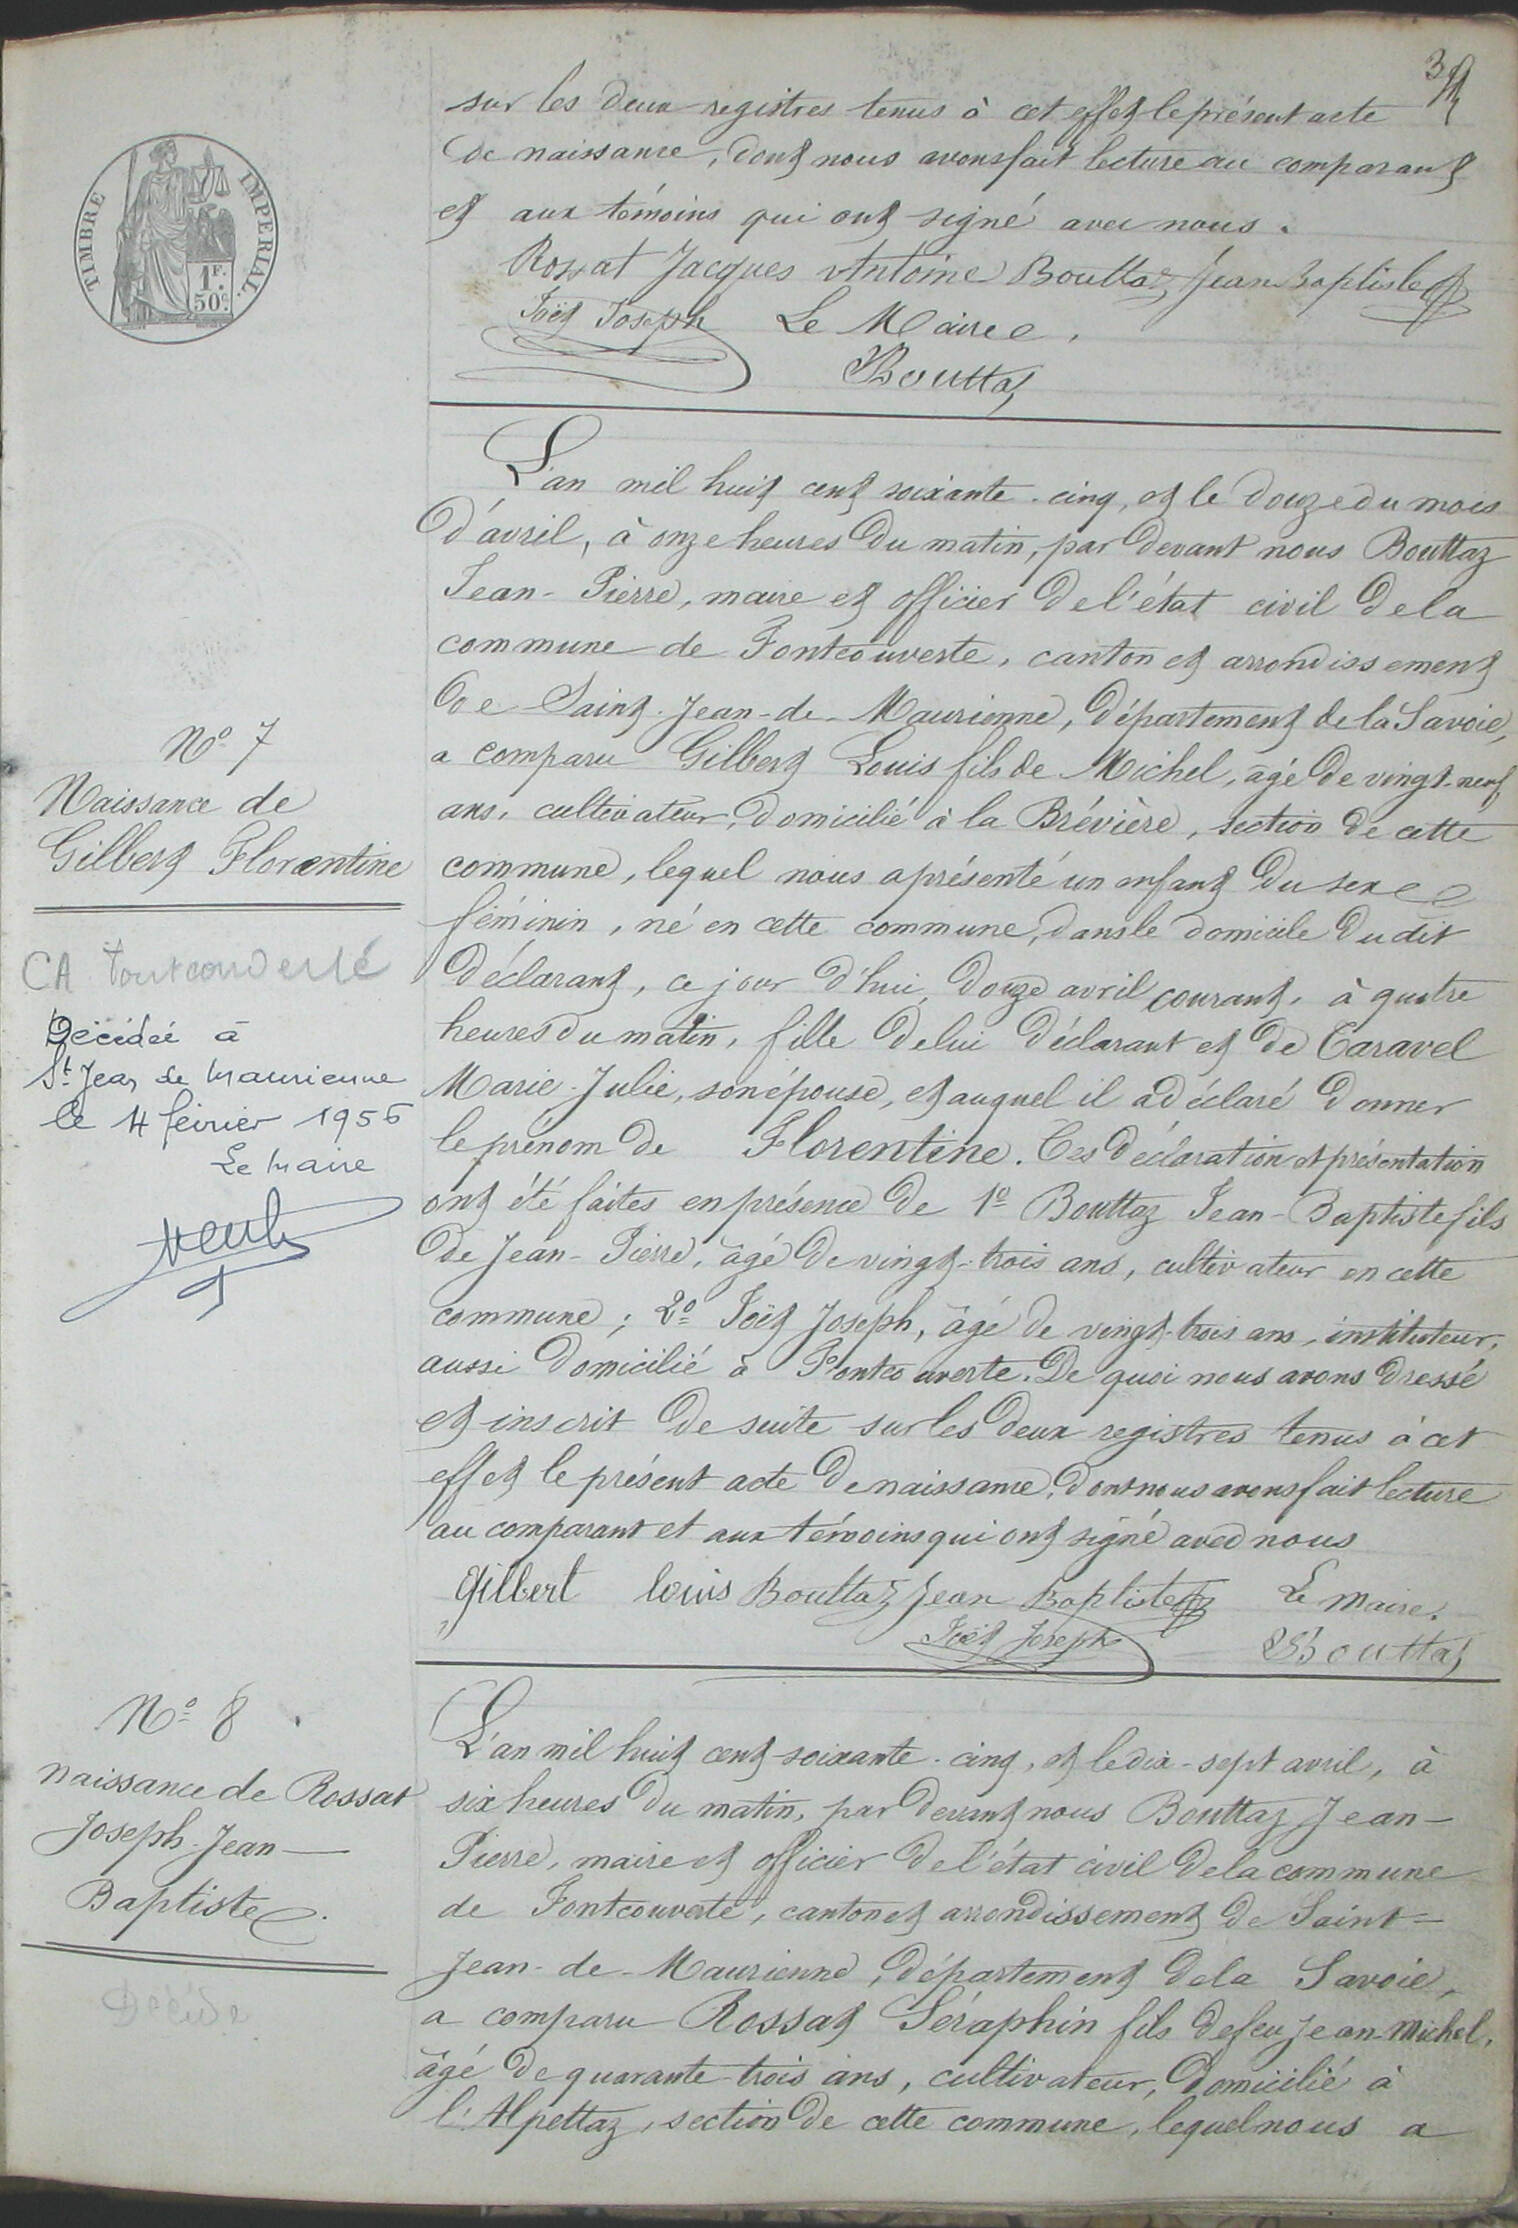 3
sur les deux registres tenus à cet effet le présent acte
de naissance, dont nous avons fait lecture au comparant
et aux témoins qui ont signé avec nous.
Rossat Jacques Antoine Bouttaz Jean Baptiste
Joët Joseph Le Maire,
Bouttaz
TIMBRE IMPERIAL.
1F.
50c.
L'an mil huit cent soixante-cinq, et le douze du mois
d'avril, à onze heures du matin, par devant nous Bouttaz
Jean-Pierre, maire et officier de l'état civil de la
commune de Fontcouverte, canton et arrondissement
de Saint-Jean-de-Maurienne, département de la Savoie,
a comparu Gilbert Louis fils de Michel, âgé de vingt-neuf
ans, cultivateur, domicilié à la Brévière, section de cette
commune, lequel nous a présenté un enfant du sexe
féminin, né en cette commune, dans le domicile du dit
déclarant, ce jour d'hui, douze avril courant, à quatre
heures du matin, fille de lui déclarant et de Caravel
Marie-Julie, son épouse, et auquel il a déclaré donner
le prénom de Florentine. Ces déclaration et présentation
ont été faites en présence de 1º Bouttaz Jean-Baptiste fils
de Jean-Pierre, âgé de vingt-trois ans, cultivateur en cette
commune; 2º Joët Joseph, âgé de vingt-trois ans, instituteur,
aussi domicilié à Fontcouverte. De quoi nous avons dressé
et inscrit de suite sur les deux registres tenus à cet
effet le présent acte de naissance, dont nous avons fait lecture
au comparant et aux témoins qui ont signé avec nous
Gilbert louis Bouttaz Jean Baptiste Le Maire.
Joët Joseph Bouttaz
Nº 7
Naissance de
Gilbert Florentine
CA
Décédée à
St Jean de Maurienne
le 4 février 1956
Le Maire
L'an mil huit cent soixante-cinq, et le dix-sept avril, à
six heures du matin, par devant nous Bouttaz Jean-
Pierre, maire et officier de l'état civil de la commune
de Fontcouverte, canton et arrondissement de Saint-
Jean-de-Maurienne, département de la Savoie,
a comparu Rossat Séraphin fils de feu Jean-Michel,
âgé de quarante-trois ans, cultivateur, domicilié à
l'Alpettaz, section de cette commune, lequel nous a
Nº 8
naissance de Rossat
Joseph-Jean-
Baptiste.
Décédé